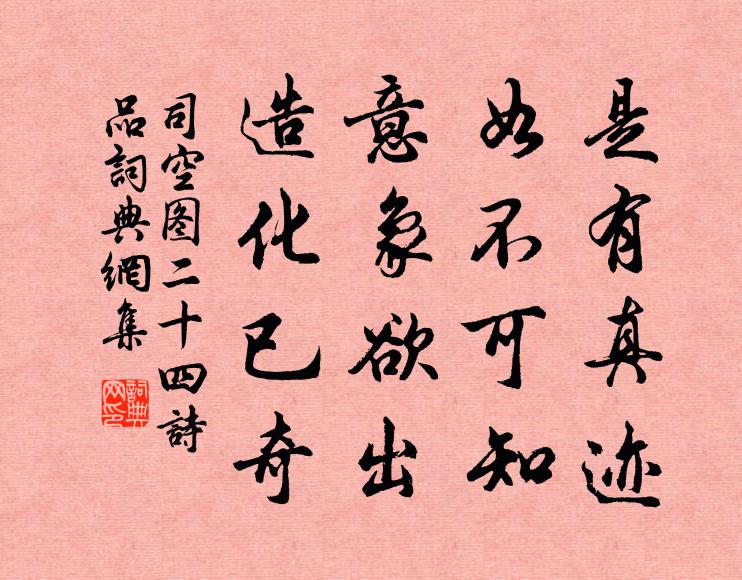 是有真迹
如不可知
意象欲出
造化已奇
司空图二十四詩
品詞典網集
詞典网印